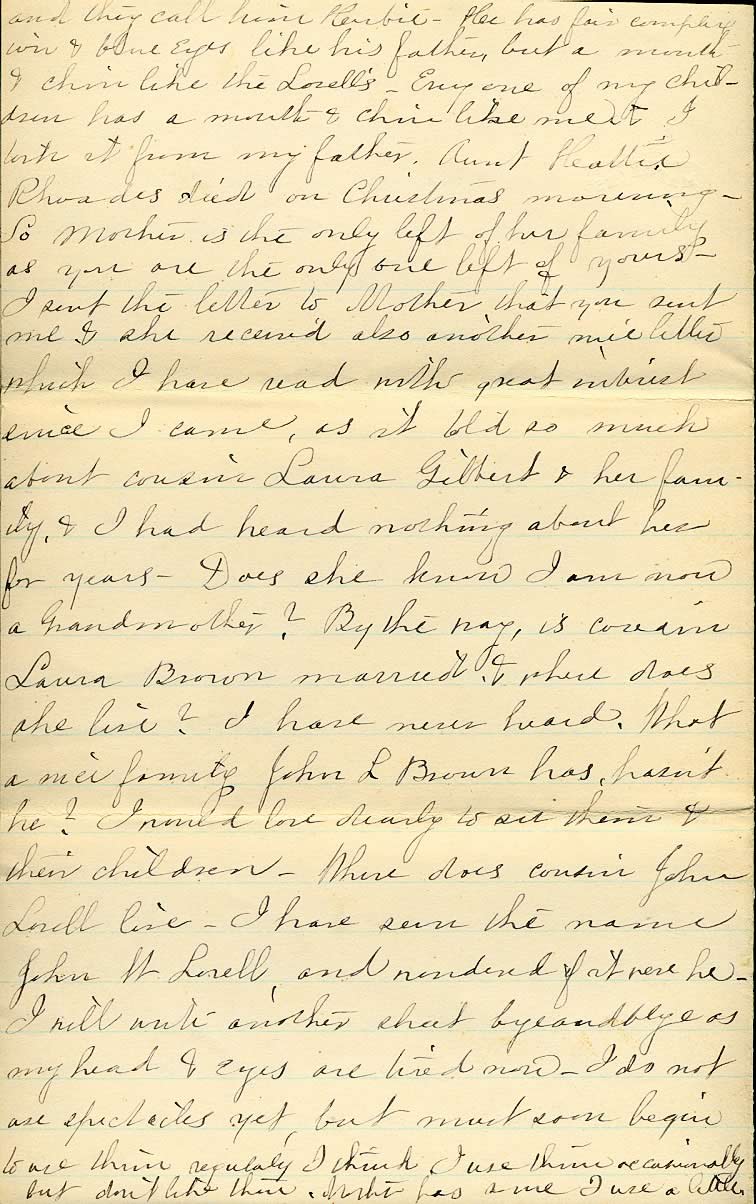 and they call him Herbie - He has fair complex
ion & blue Eyes like his father, but a mouth
& chin like the Lovell's - Every one of my chil-
dren has a mouth & chin like me & I
took it from my father. Aunt Hattie
Rhoades died on Christmas morning -
So Mother is the only left of her family
as you are the only one left of yours -
I sent the letter to Mother that you sent
me & she received also another nice letter
which I have read with great interest
since I came, as it told so much
about cousin Laura Gilbert & her fam-
ily, & I had heard nothing about her
for years - Does she know I am now
a Grandmother? By the way, is cousin
Laura Brown married & where does
she live? I have never heard. What
a nice family John L Brown has, hasn't
he? I would love dearly to see them &
their children - Where does cousin John
Lovell live - I have seen the name
John W Lovell, and wondered if it were he -
I will write another sheet byeandbye as
my head & eyes are tired now - I do not
use spectacles yet, but must soon begin
to use them regularly I think I use them occasionally
but don't like them. has some I use a little